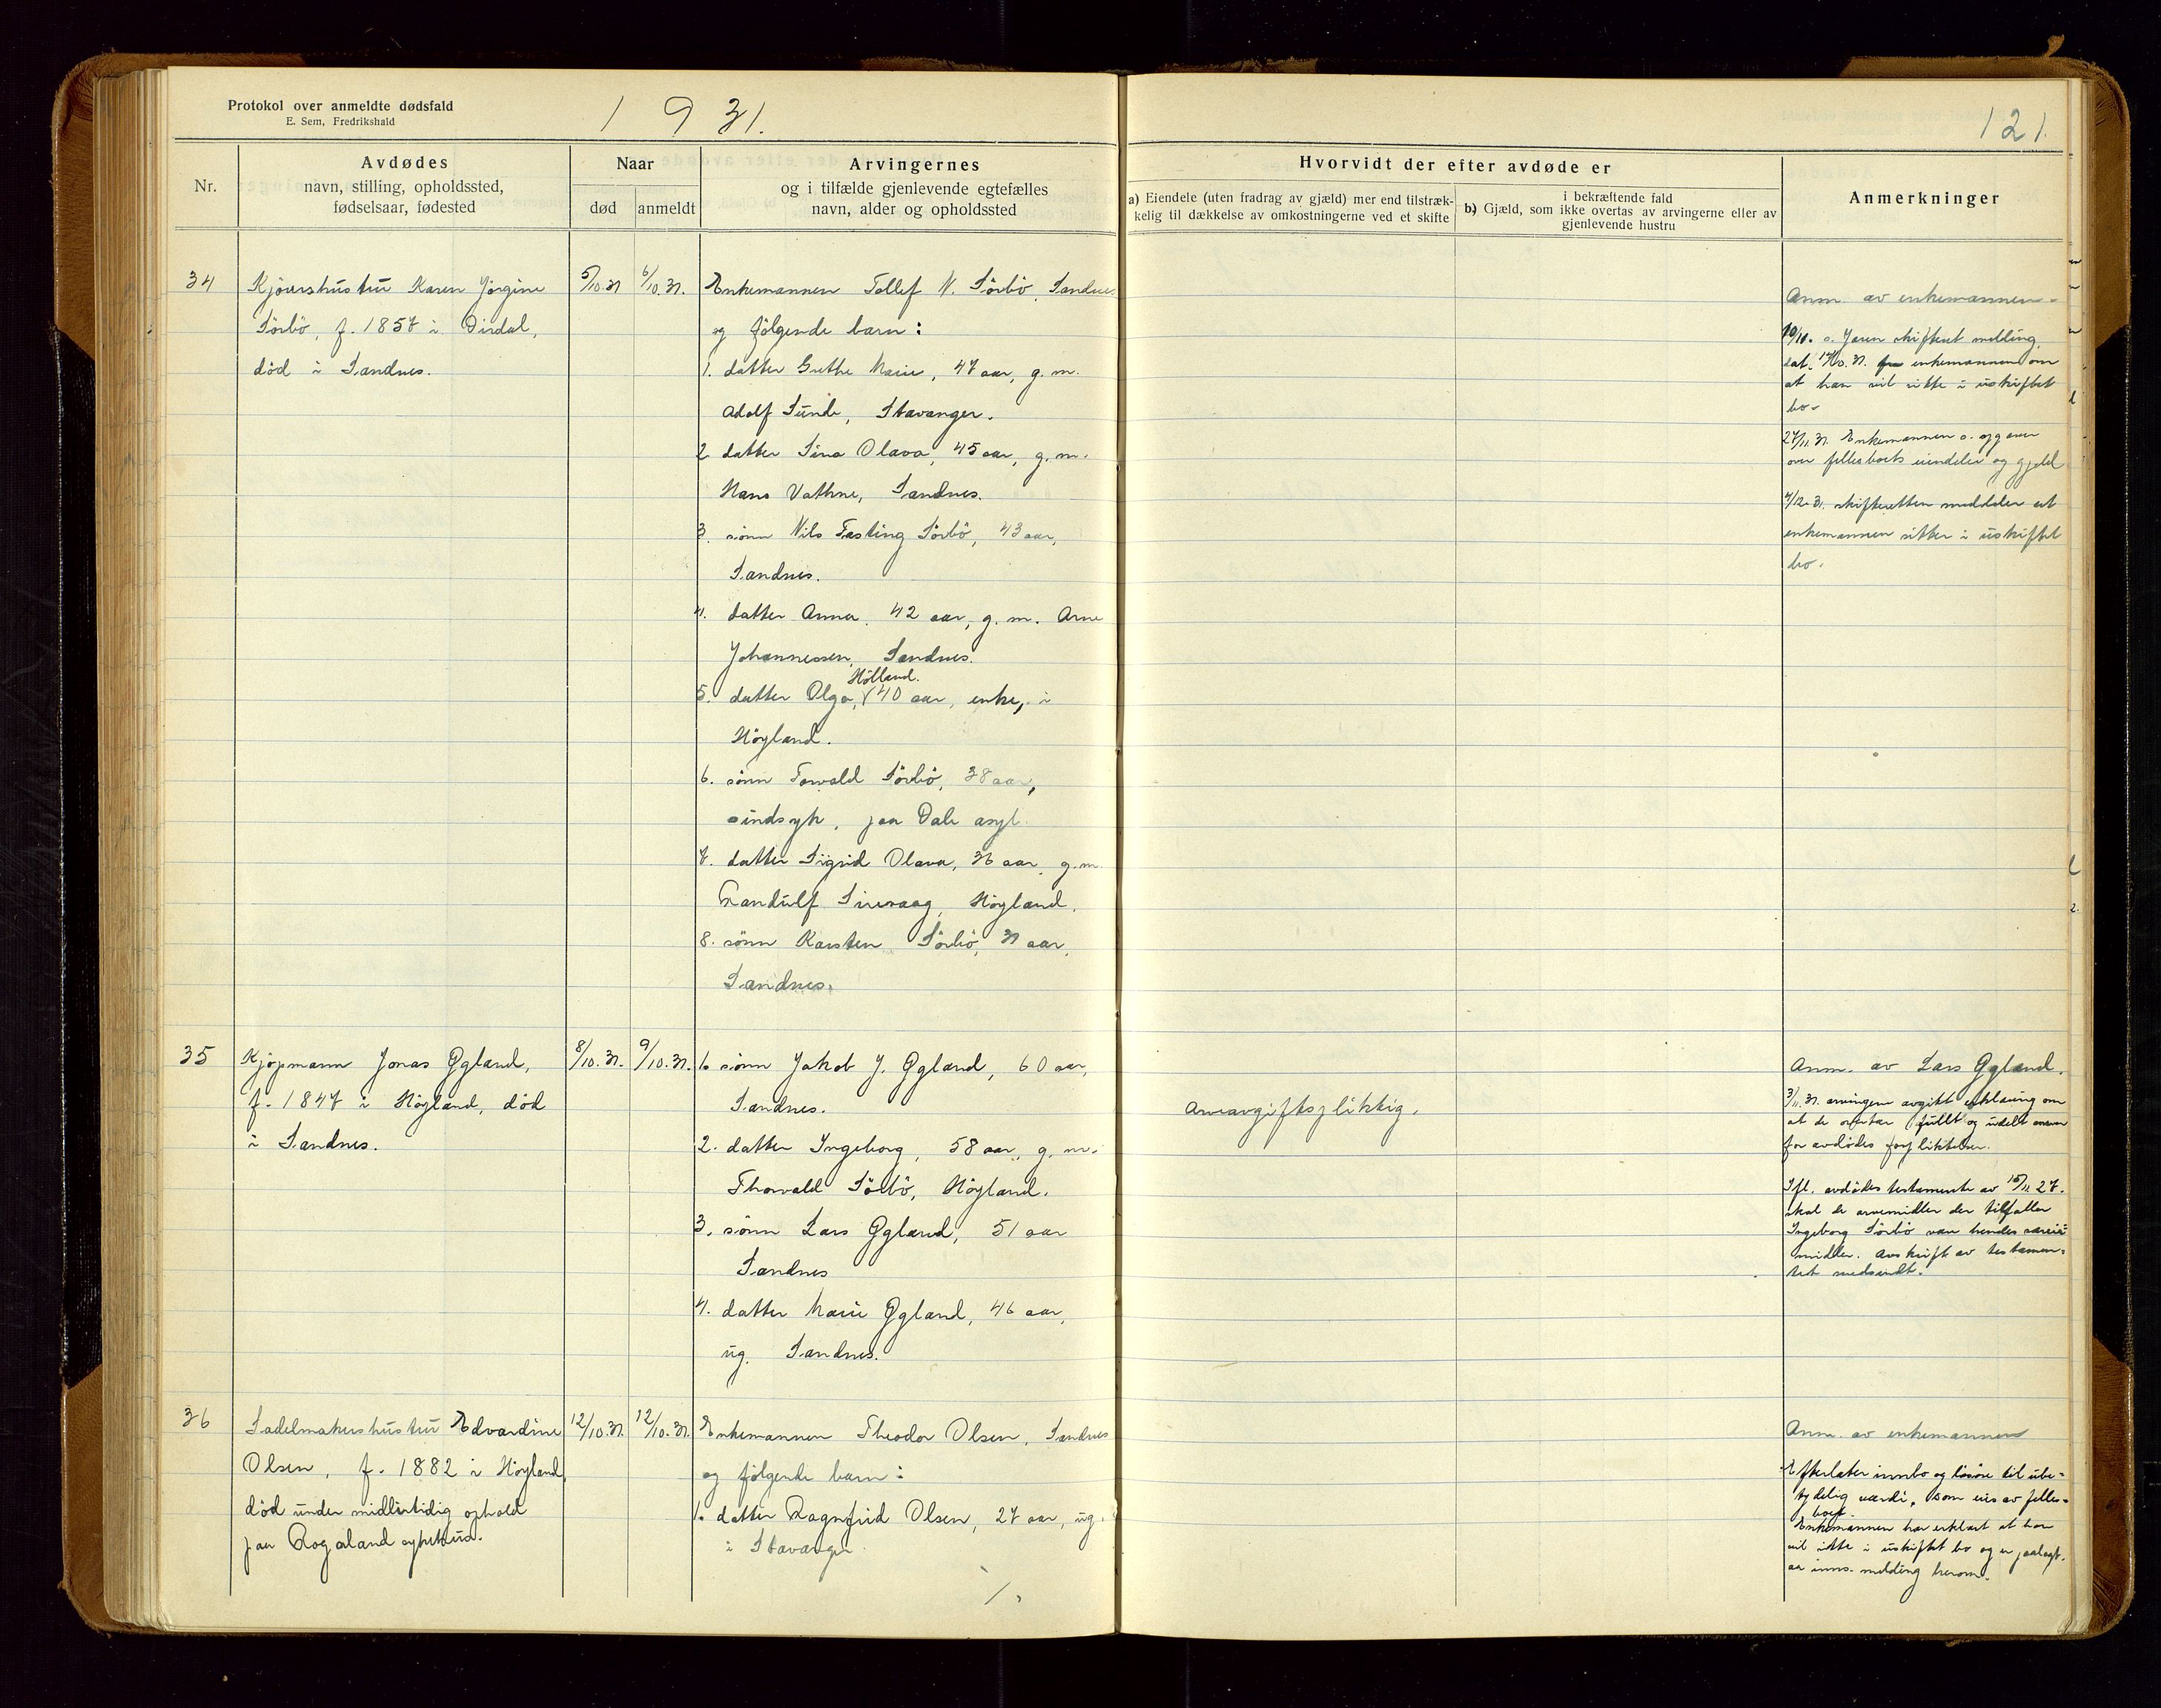 Protokol over anmeldte dødsfald
E. Sem, Fredrikshald
1931.
121.
Nr.
Avdødes
navn, stilling, opholdssted,
fødselsaar, fødested
Naar
død
anmeldt
Arvingernes
og i tilfælde gjenlevende egtefælles
navn, alder og opholdssted
Hvorvidt der efter avdøde er
a) Eiendele (uten fradrag av gjæld) mer end tilstræk-
kelig til dækkelse av omkostningerne ved et skifte
i bekræftende fald
b) Gjæld, som ikke overtas av arvingerne eller av
gjenlevende hustru
Anmerkninger
34
Kjörershustru Karen Jörgine
Sörbö, f. 1857 i Dirdal,
död i Sandnes.
5/10.31
6/10.31.
Enkemannen Tollef N. Sörbö, Sandnes
og fölgende barn:
1. datter Grethe Marie, 47 aar, g.m.
Adolf Sunde, Stavanger.
2. datter Sina Olava, 45 aar, g.m.
Hans Vathne, Sandnes.
3. sönn Nils Tasting Sörbö, 43 aar,
Sandnes.
4. datter Anna, 42 aar, g.m. Arne
Johannessen, Sandnes.
Hölland.
5. datter Olga, 40 aar, enke, i
Höyland.
6. sönn Torvald Sörbö, 38 aar,
sindsyk, paa Dale asyl.
7. datter Sigrid Olava, 36 aar, g.m.
Randulf Sirevaag, Höyland.
8. sönn Karsten Sörbö, 31 aar,
Sandnes.
Anm. av enkemannen.
19/10. s. Jæren skifteret melding,
dat. 17/10.31. fra enkemannen om
at han vil sitte i uskiftet
bo.
27/11.31. Enkemannen s. opgaver
over fellesboets eiendeler og gjeld
4/12.31. skifteretten meddeler at
enkemannen sitter i uskiftet
bo.
35
Kjöpmann Jonas Ögland,
f. 1847 i Höyland, död
i Sandnes.
8/10.31.
9/10.31.
1. sönn Jakob J. Ögland, 60 aar,
Sandnes.
2. datter Ingeborg, 58 aar, g.m.
Thorvald Sörbö, Höyland.
3. sönn Lars Ögland, 51 aar
Sandnes
4. datter Marie Ögland, 46 aar,
ug. Sandnes.
Arveavgiftspliktig.
Anm. av Lars Ögland.
3/11.31. arvingene avgitt erklæring om
at de overtar fullt og udelt ansvar
for avdödes forpliktelser.
Ifl. avdödes testamente av 15/11 27.
skal de arvemidler der tilfaller
Ingeborg Sörbö være hendes særeie
midler. Avskrift av testamen-
tet medsendt.
36
Sadelmakershustru Edvardine
Olsen, f. 1882 i Höyland,
död under midlertidig ophold
paa Rogaland sykehus.
12/10.31.
12/10.31.
Enkemannen Theodor Olsen, Sandnes
og fölgende barn:
1. datter Ragnfrid Olsen, 27 aar, ug.
i Stavanger
Anm. av enkemannen
Efterlater innbo og lösöre til ube-
tydelig værdi, som eies av felles-
boet.
Enkemannen har erklært at han
vil sitte i uskiftet bo og er paalagt
aa inns. melding herom.